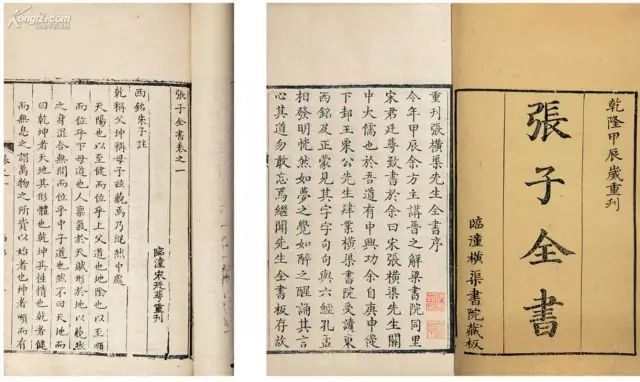 乾隆甲辰歲重刊
張子全書
臨潼橫渠書院藏板
重刊張橫渠先生全書序
今年甲辰余方主講晉之解梁書院同里
宋君廷萼致書於余曰宋張橫渠先生關
中大儒也於吾道有中興功余自庚申從
下邽王栗公先生肄業橫渠書院受讀東
西銘及正蒙見其字字句句與六經孔孟
相發明恍然如夢之覺如醉之醒誦其言
心其道勿敢忘焉繼聞先生全書板存故
張子全書卷之一
臨潼宋廷萼重刊
西銘朱子註
乾稱父坤稱母予茲藐焉乃混然中處
天陽也以至健而位乎上父道也地陰也以至順
而位乎下母道也人稟氣於天賦形於地以藐然
之身混合無間而位乎中子道也然不曰天地而
曰乾坤者天地其形體也乾坤其性情也乾者健
而無息之謂萬物之所資以始者也坤者順而有
Kongfz.com